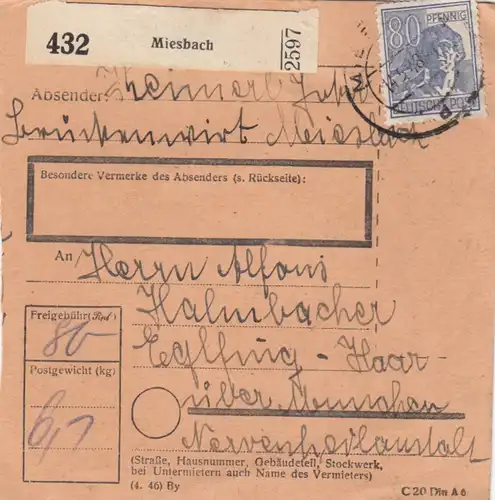 432
Miesbach
2597
80 PFENNIG
DEUTSCHE POST
Absender:
Brückenwirt Miesbach
Besondere Vermerke des Absenders (s. Rückseite):
An Herrn Alfons
Halmbacher
Eglfing - Haar
über München
Nervenheilanstalt
Freigebühr (Rpf)
80
Postgewicht (kg)
6,1
(Straße, Hausnummer, Gebäudeteil, Stockwerk,
bei Untermietern auch Name des Vermieters)
(4. 46) By
C 20 Din A 6